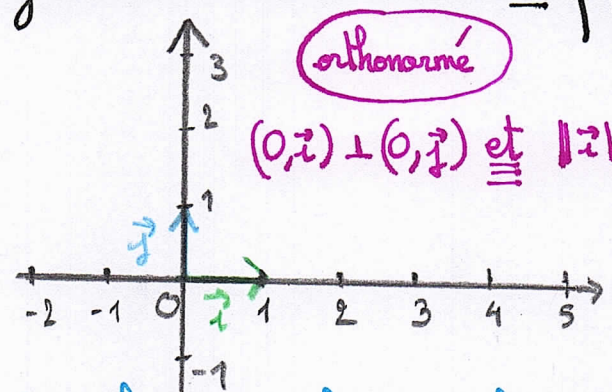 orthonormé
3
2
(O,i⃗) ⊥ (O,j⃗) et ‖i⃗
1
j⃗
-2 -1 O i⃗ 1 2 3 4 5
-1